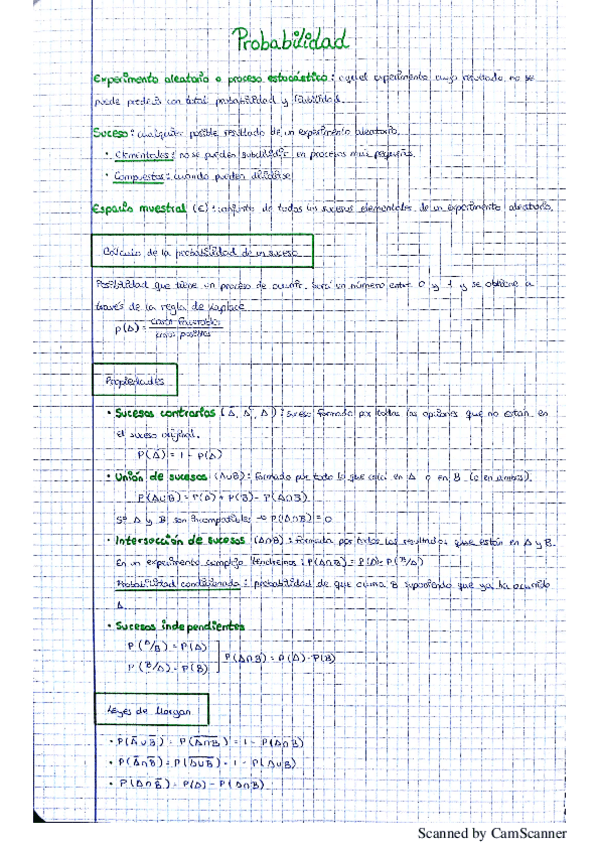 Probabilidad
Experimento aleatorio o proceso estocástico: aquel experimento cuyo resultado no se
puede predecir con total probabilidad y
Suceso: cualquier posible resultado de un experimento aleatorio.
• Elementales: no se pueden subdividir en procesos más pequeños.
• Compuestos: cuando pueden dividirse
Espacio muestral (E): conjunto de todos los sucesos elementales de un experimento aleatorio.
Cálculo de la probabilidad de un suceso
Posibilidad que tiene un proceso de ocurrir. Será un número entre 0 y 1 y se obtiene a
través de la regla de Laplace
P(A) = casos favorables / casos posibles
Propiedades
• Sucesos contrarios (Ā, A', A): suceso formado por todas las opciones que no están en
el suceso original.
P(Ā) = 1 - P(A)
• Unión de sucesos (A∪B): formado por todo lo que está en A o en B (o en ambos).
P(A∪B) = P(A) + P(B) - P(A∩B)
Si A y B son incompatibles → P(A∩B) = 0
• Intersección de sucesos (A∩B): formada por todos los resultados que están en A y B.
En un experimento complejo tendremos: P(A∩B) = P(A) · P(B/A)
Probabilidad condicionada: probabilidad de que ocurra B suponiendo que ya ha ocurrido
A.
• Sucesos independientes
P(A/B) = P(A)
P(B/A) = P(B)
P(A∩B) = P(A) · P(B)
Leyes de Morgan
• P(Ā∪B̄) = P(A∩B)‾ = 1 - P(A∩B)
• P(Ā∩B̄) = P(A∪B)‾ = 1 - P(A∪B)
• P(A∩B̄) = P(A) - P(A∩B)
Scanned by CamScanner